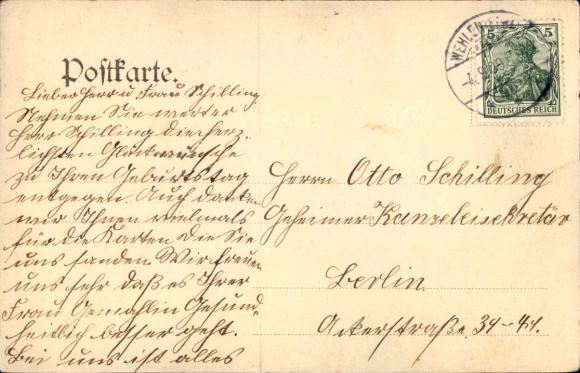 Postkarte.
Lieber Herr u. Frau Schilling
Nehmen Sie werter
Herr Schilling die herz-
lichsten Glückwünsche
zu Ihren Geburtstag
entgegen. Auch danken
wir Ihnen vielmals
für die Karten die Sie
uns sanden. Wir freuen
uns sehr daß es Ihrer
Frau Gemahlin Gesund-
heitlich besser geht.
Bei uns ist alles
WEHLEN
5 5
DEUTSCHES REICH
Herrn Otto Schilling
Geheimer Kanzeleisekretär
Berlin
Ackerstraße. 34-41.